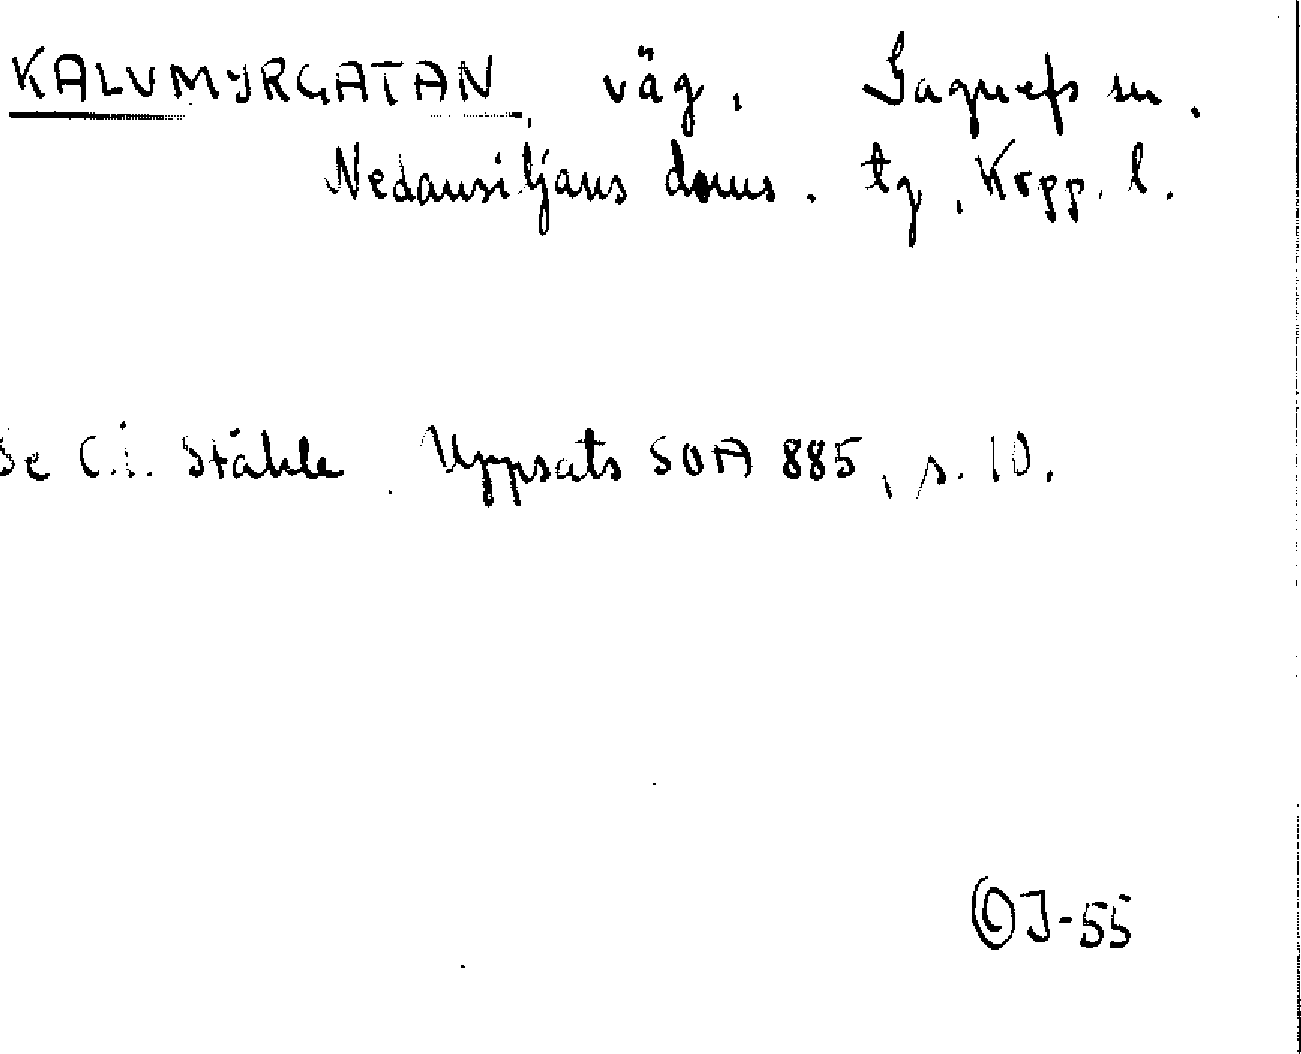 KALVMYRGATAN, väg, Gagnefs sn.
Nedansiljans doms. tg, Kopp. l.
Se C.I. Ståhle. Uppsats SOA 885, s. 10.
J-55